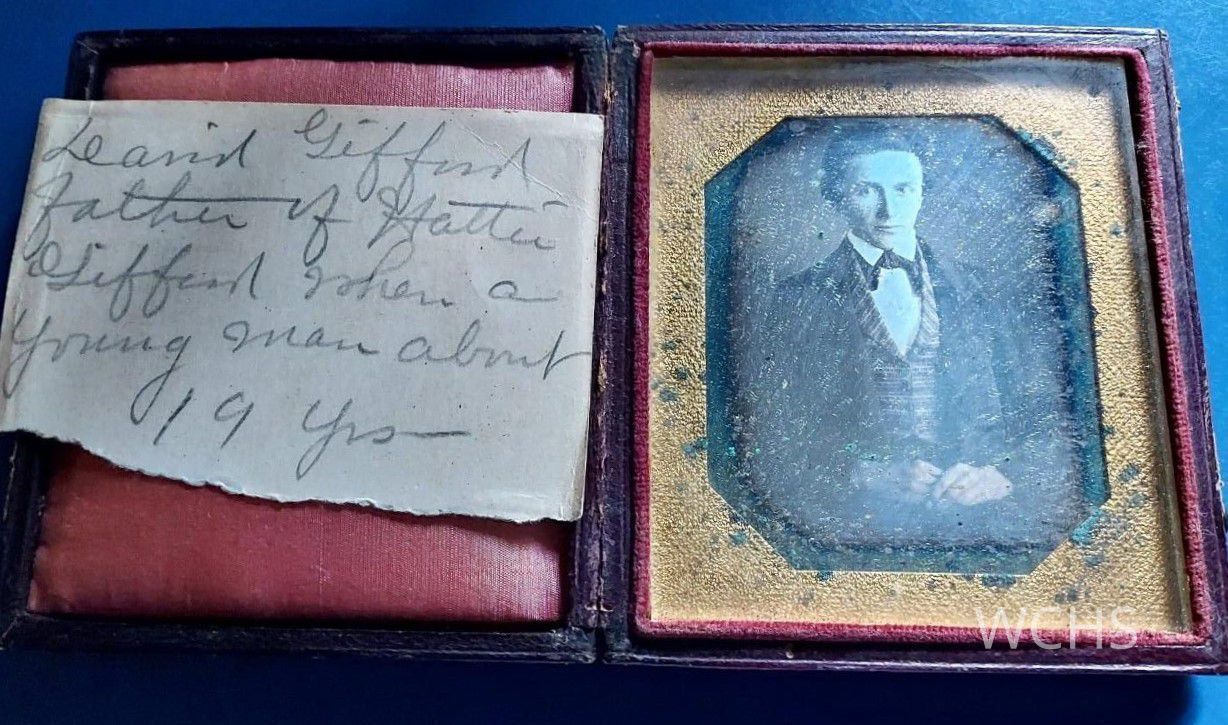 David Gifford
father of Hattie
Gifford when a
Young man about
19 Yrs
WCHS